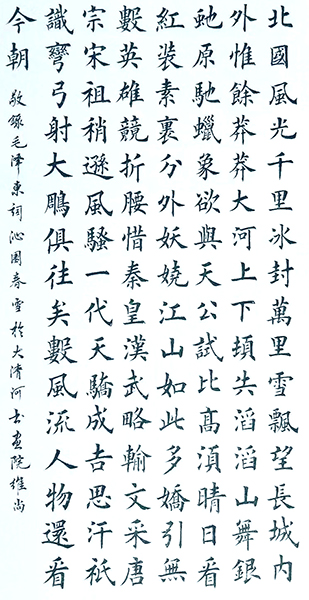 北國風光千里冰封萬里雪飄望長城内
外惟餘莽莽大河上下頓失滔滔山舞銀
虵原馳蠟象欲與天公試比髙湏晴日看
紅装素裹分外妖嬈江山如此多嬌引無
數英雄競折腰惜秦皇漢武略輸文采唐
宗宋祖稍遜風騷一代天驕成吉思汗衹
識彎弓射大鵰俱往矣數風流人物還看
今朝
敬錄毛澤東詞沁園春雪於大清河书画院維尚